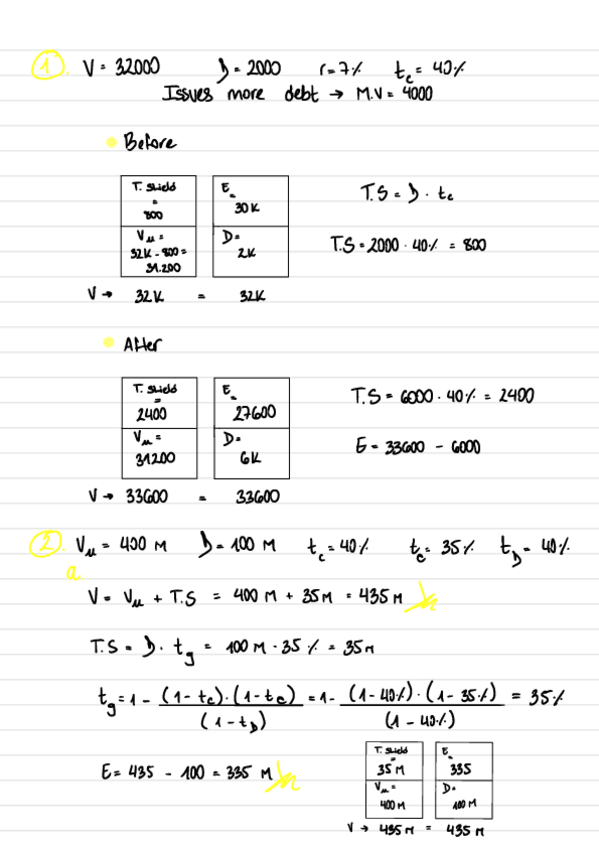 1. V = 32000 D = 2000 r = 7% tc = 40%
Issues more debt → M.V = 4000
• Before
T. shield = 800
E = 30K
Vu = 32K - 800 = 31.200
D = 2K
V → 32K = 32K
T.S = D · tc
T.S = 2000 · 40% = 800
• After
T. shield = 2400
E = 27600
Vu = 31200
D = 6K
V → 33600 = 33600
T.S = 6000 · 40% = 2400
E = 33600 - 6000
2. Vu = 400 M D = 100 M tc = 40% te = 35% tD = 40%
a
V = Vu + T.S = 400 M + 35 M = 435 M
T.S = D · tg = 100 M · 35% = 35 M
tg = 1 - (1 - tc) · (1 - te) / (1 - tD) = 1 - (1 - 40%) · (1 - 35%) / (1 - 40%) = 35%
E = 435 - 100 = 335 M
T. shield = 35 M
E = 335
Vu = 400 M
D = 100 M
V → 435 M = 435 M